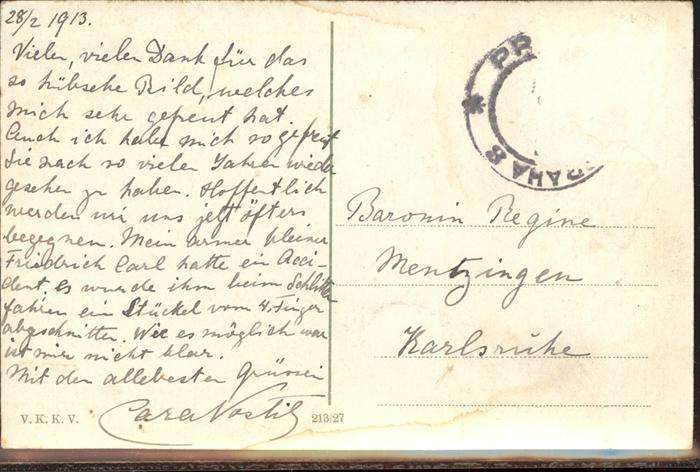 28/2 1913.
Vielen, vielen Dank für das
so hübsche Bild, welches
mich sehr gefreut hat.
Auch ich habe mich so gefreut
Sie nach so vielen Jahren wieder
gesehen zu haben. Hoffentlich
werden wir uns jetzt öfters
begegnen. Mein armer kleiner
Friedrich Carl hatte ein Acci-
dent, es wurde ihm beim Schlitten
fahren ein Stückel vom 4. Finger
abgeschnitten. Wie es möglich war
ist mir nicht klar.
Mit den allebesten Grüssen
V. K. K. V.
213/27
PR
PRAHA 8
Baronin Regine
Mentzingen
Karlsruhe